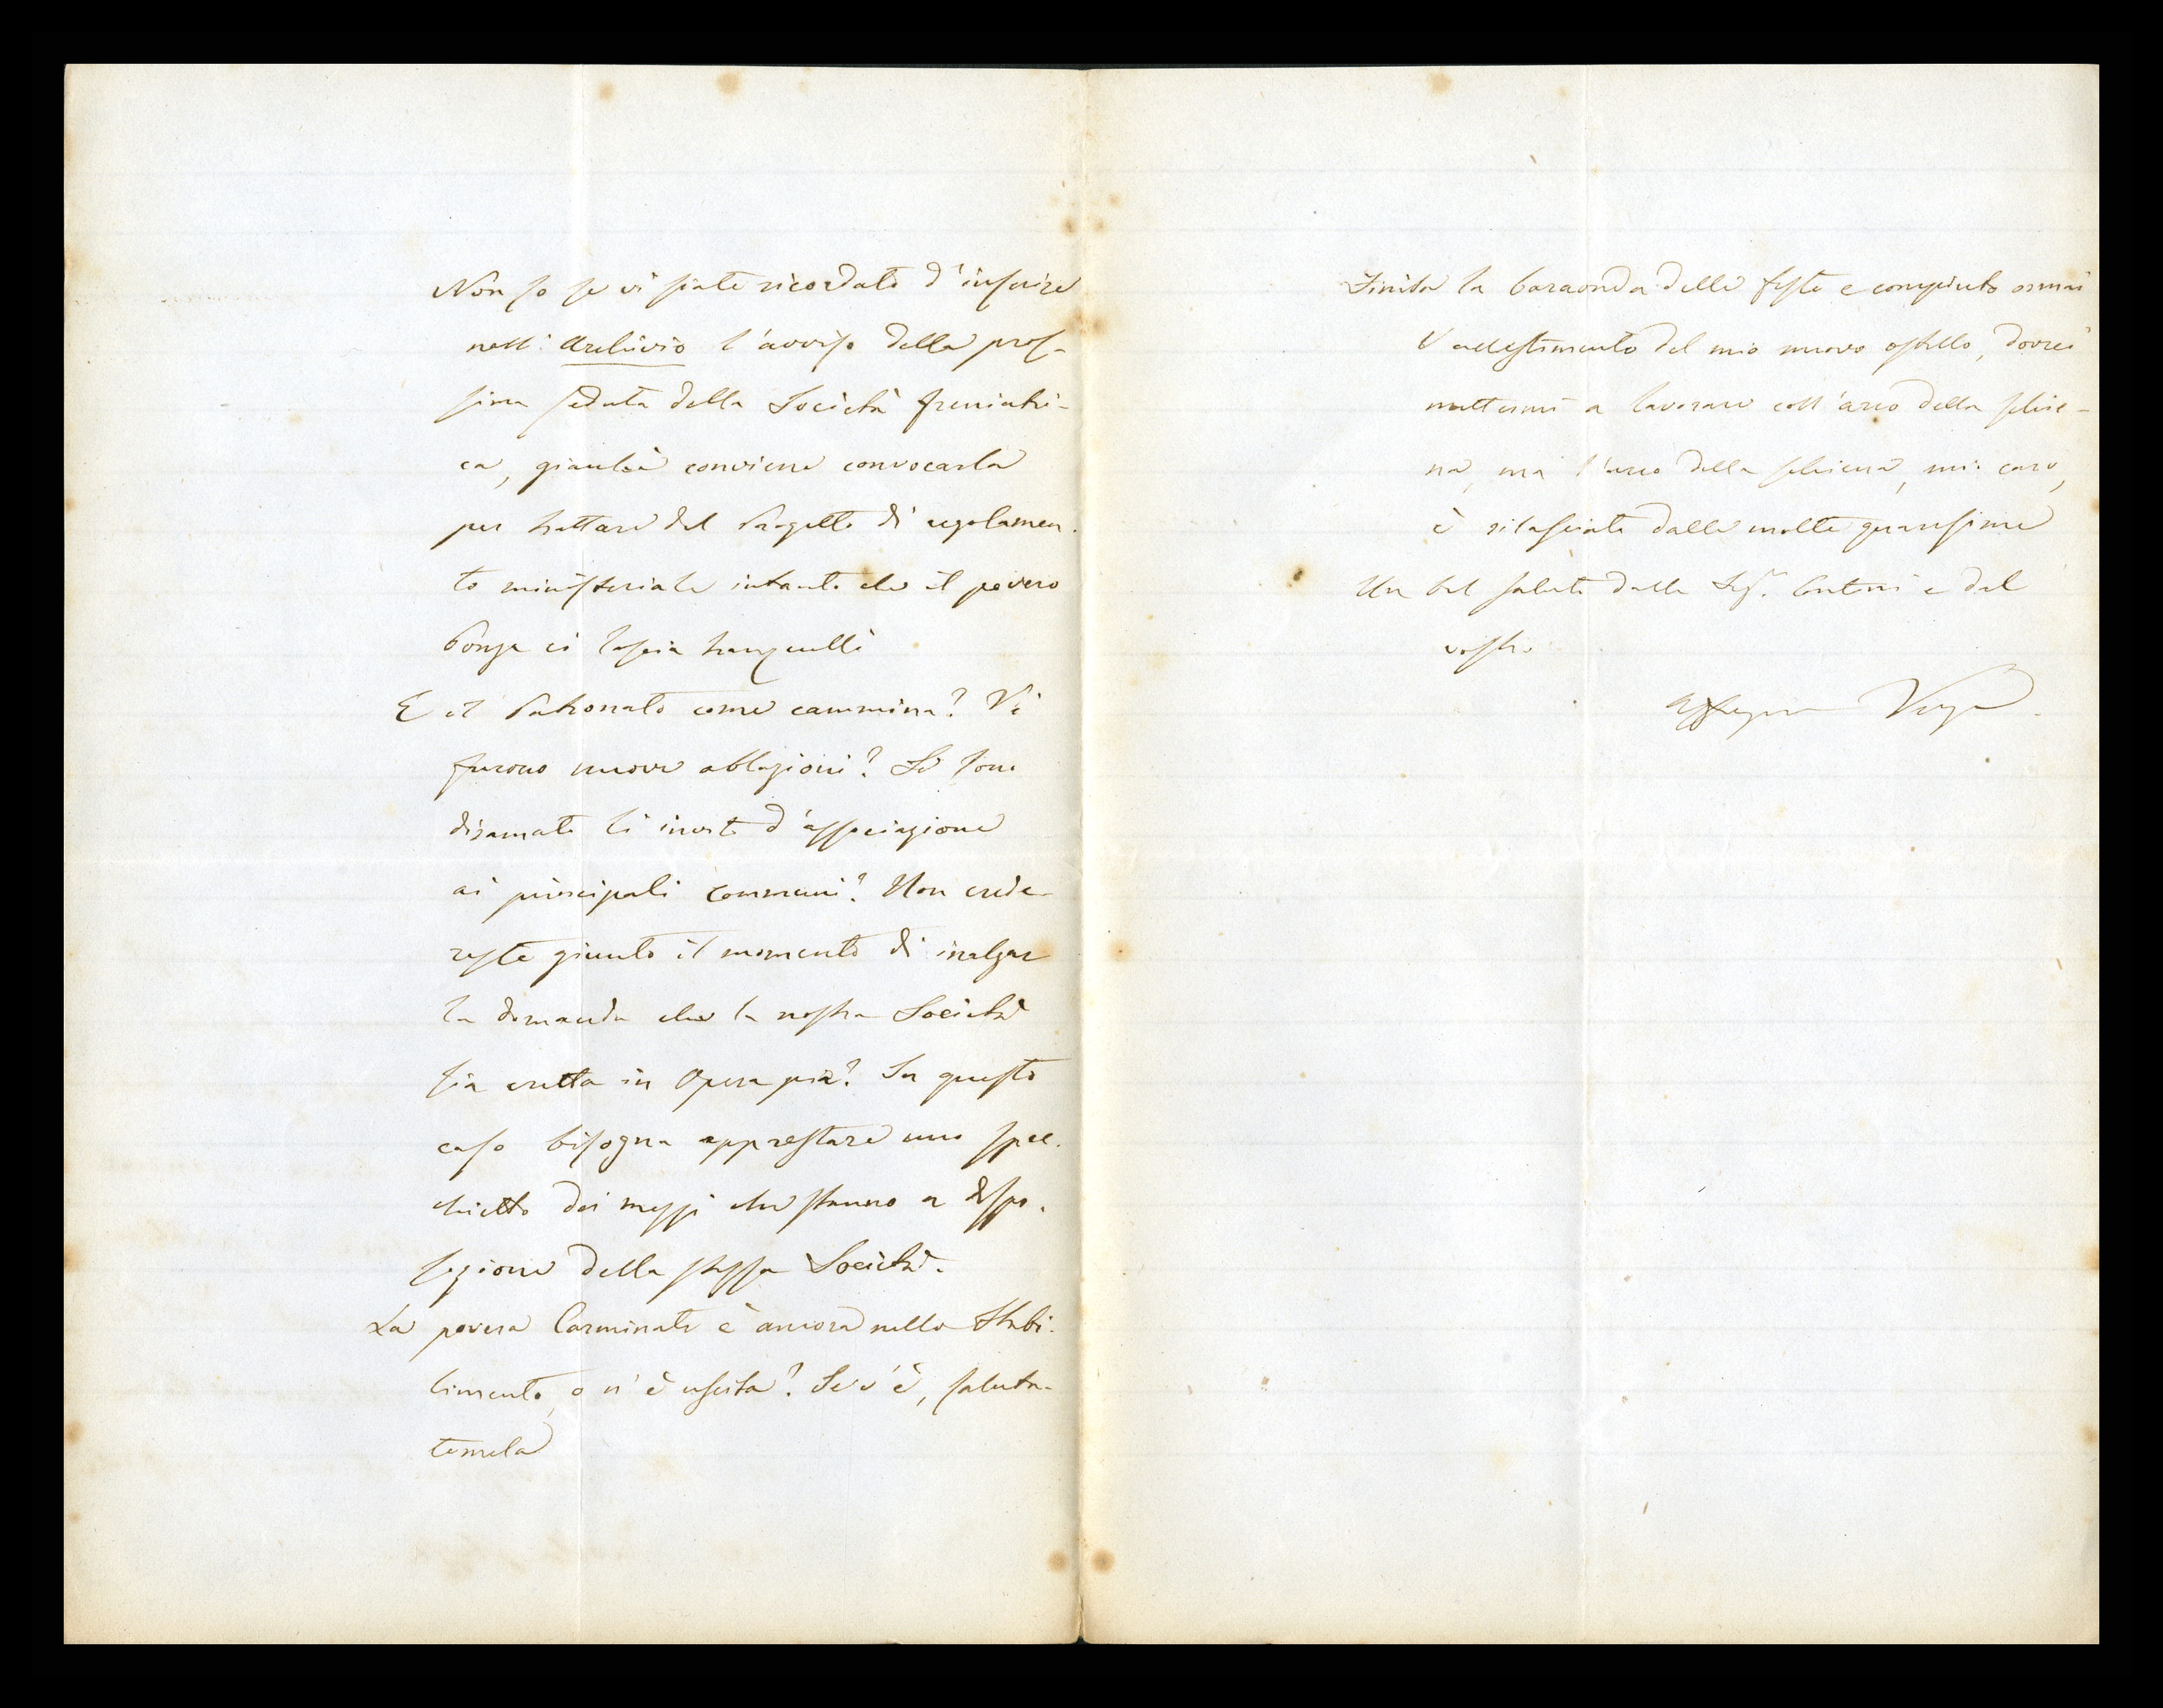 Non so se vi siate ricordato d'inserire
nell'Archivio l'avviso della pros-
sima seduta della Società freniatri-
ca, giacchè conviene convocarla
per trattare del Progetto di regolamen-
to ministeriale intanto che il povero
Bonga ci lascia tranquilli
E il Patronato come cammina? Vi
furono nuove oblazioni? Si sono
diramate li inviti d'associazione
ai principali communi? Non crede-
reste giunto il momento di inalzar
la domanda che la nostra Società
sia eretta in Opera pia? In questo
caso bisogna apprestare uno spec-
chietto dei mezzi che stanno a dispo-
sizione della stessa Società.
La povera Carminati è ancora nello Stabi-
limento, o n'è uscita? Se v'è, saluta-
temela
Finita la baraonda delle feste e compiuto ormai
l'allestimento del mio nuovo ostello, dovrei
mettermi a lavorare coll'arco della schie-
na, ma l'arco della schiena, mio caro,
è rilasciato dalle molte quaresime
Un bel saluto dalla Sigra. Contini e dal
vostro
Affezmo Verga